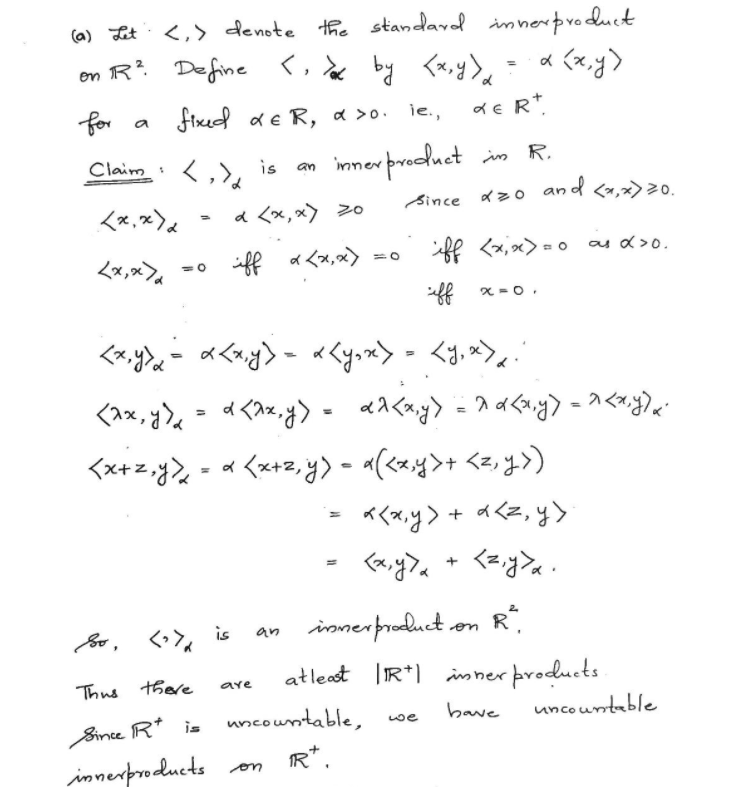 (a) Let <,> denote the standard innerproduct
on ℝ². Define <,>_α by <x,y>_α = α<x,y>
for a fixed α ∈ R, α >0. ie., α ∈ R⁺.
Claim : <,>_α is an innerproduct in R.
<x,x>_α = α<x,x> ≥0 since α≥0 and <x,x>≥0.
<x,x>_α =0 iff α<x,x> =0 iff <x,x>=0 as α>0.
iff x=0.
<x,y>_α = α<x,y> = α<y,x> = <y,x>_α.
<λx,y>_α = α<λx,y> = αλ<x,y> = λα<x,y> = λ<x,y>_α.
<x+z,y>_α = α<x+z,y> = α(<x,y>+<z,y>)
= α<x,y> + α<z,y>
= <x,y>_α + <z,y>_α.
So, <,>_α is an innerproduct on R².
Thus there are atleast |ℝ⁺| innerproducts.
Since ℝ⁺ is uncountable, we have uncountable
innerproducts on ℝ⁺.